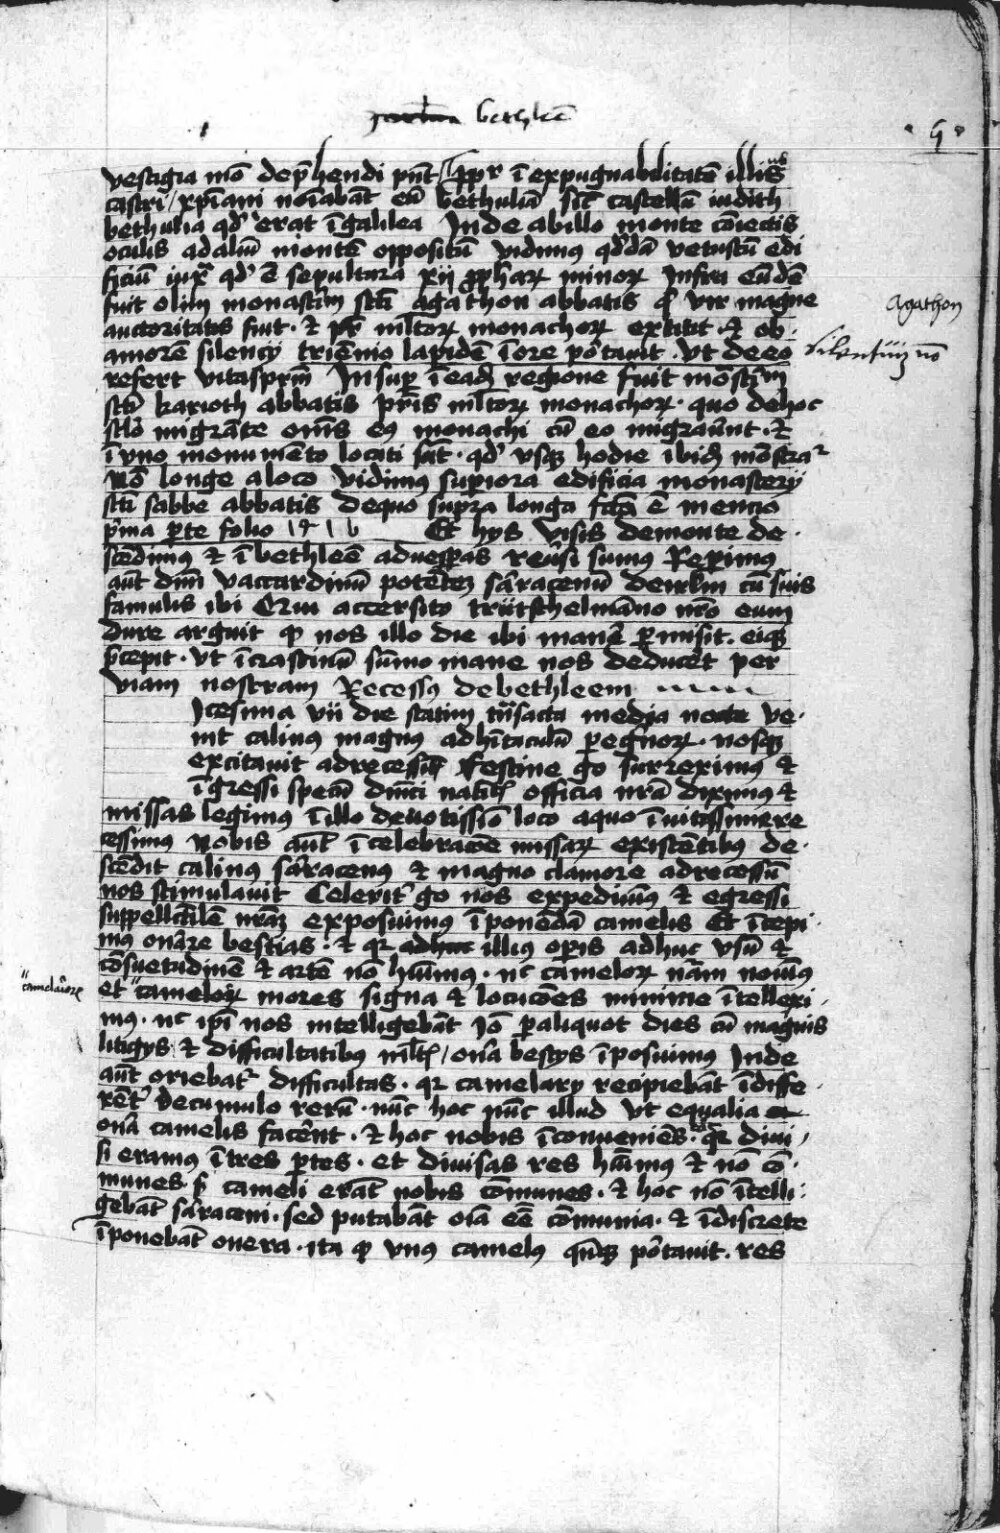 bethleē
vestigia mō dep̄hendi pn̄t / ꝓpr̄ īexpugnabilitatē illiꝰ
castri / xp̄iani noīabāt eū bethuliā sic̄ castellū iudith
bethulia qd̛ erat īgalilea Inde abillo monte cōiectis
oculis adaliū montē oppositū vidimus qd̛dā vetustū edi
ficiū iux̄ qd̛ ē sepultura xij ꝓph̄arꝝ minorꝝ Infra eūdē
fuit olim monastīm scti agathon abbatis qͥ vir magne
Agathon
auctoritatis fuit · et pr̄ ml̄torꝝ monachorꝝ extitit · et ob ·
amorē silencij triēnio lapidē īore pōtauit · vt deeo
refert vitaspr̄m Insuꝑ īeadē regione fuit mōstīm
scti karioth abbatis pr̄is ml̄torꝝ monachorꝝ · quo dehoc
sclo migrāte om̄s eꝰ monachi cū eo migraūnt · et
ī vno monumēto locati sūt · qd̛ vsqꝫ hodie ibidē mōstra
Nō longe aloco vidimus suꝑiora edificia monasterij
scti sabbe abbatis dequo supra longa fc̄ā ē mencio
p̄ma ꝑte folio Et hijs visis demonte de ·
scēdimꝰ et ī bethleē aduesꝑas reūsi sumus Reꝑimꝰ
aūt dn̄m vaccardinū potētē sāracenū cū suis
famulis ibi Qui accersito nr̄o eum
dure arguit qͥ nos illo die ibi manē ꝑmisit · eiqꝫ
p̄cepit · vt īcrastinū sūmo mane nos deducēt per
viam nostram Recessꝰ debethleem
Icesima vii die statim trāsacta media nocte ve ·
nit calinꝰ magnꝰ adhītaculū ꝑegnorꝝ · nosqꝫ
excitauit adrecessū Festine go surreximꝰ et
īgressi specū dn̄ici natiū officia nrā diximꝰ et
missas legimꝰ īillo deuotissīo loco aquo īuitissimere
cessimꝰ Nobis aūt īcelebracōe missarꝝ existētibꝰ de ·
scēdit calinꝰ sāracenꝰ et magno clamore adrecessū
nos stimulauit Celerit̄ go nos expediuimꝰ et egressi
suppellectilē nr̄aꝫ exposuimꝰ īponēdā camelis Et īcepi
mꝰ onāre bestias · et qr illiꝰ oꝑis adhuc vsū et
cōsuetudinē et artē nō hūimus · nc camelorꝝ nām nouimꝰ
et camelorꝝ mores signa et locucōes minime ītellexi ·
mꝰ · nc ip̄i nos intelligebāt Iō ꝑaliquot dies cū magnis
litigijs et difficultatibꝰ ml̄tis / onā bestijs īposuimꝰ Inde
aūt oriebat̄ difficultas · qr camelarij recipiebāt īdiffe ·
rēt̄ decumulo rerū · nūc hoc nūc illud vt equalia
onā camelis facēnt · et hoc nobis īconueniēs · qr diui /
si eramus ītres ꝑtes · et diuisas res hūimus et nō cō ·
munes · cameli erāt nobis cōmunes · et hoc nō ītelli ·
gebāt sāraceni · sed putabāt oīa eē cōmunia · et īdiscrete
īponebāt onera · ita qͥ vnꝰ camelꝰ pōtauit · res